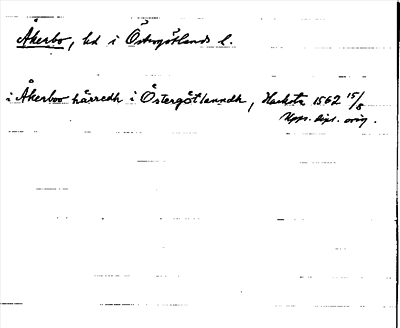 Åkerbo, hd i Östergötlands l.
i Åkerboo häredh i Östergötlanndh, 1562 15/8
Upps. dipl. orig.